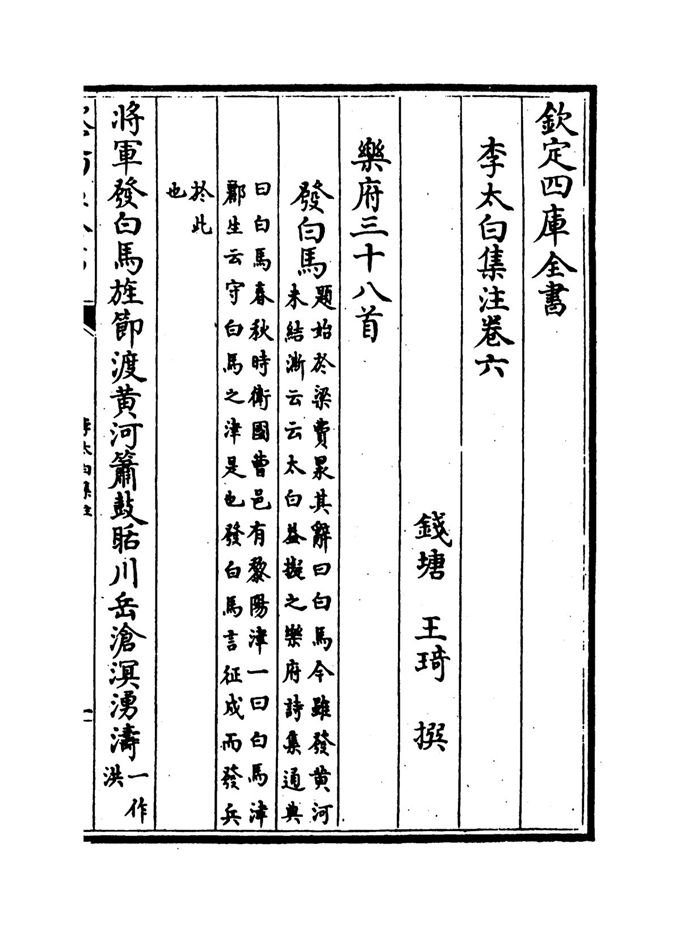 欽定四庫全書
李太白集注卷六
錢塘 王琦 撰
樂府三十八首
發白馬
題始於梁費昶其辭曰白馬今雖發黃河
未結澌云云太白葢擬之樂府詩集通典
曰白馬春秋時衛國曹邑有黎陽津一曰白馬津
酈生云守白馬之津是也發白馬言征戍而發兵
於此
也
將軍發白馬旌節渡黃河簫鼓聒川岳滄溟湧濤
一作
洪
李太白集注